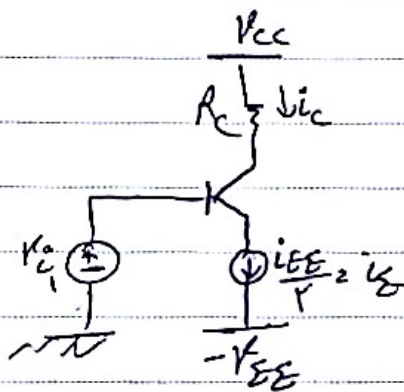 VCC
RC ↓ic
Vi1
iEE/۲ = iE
-VEE